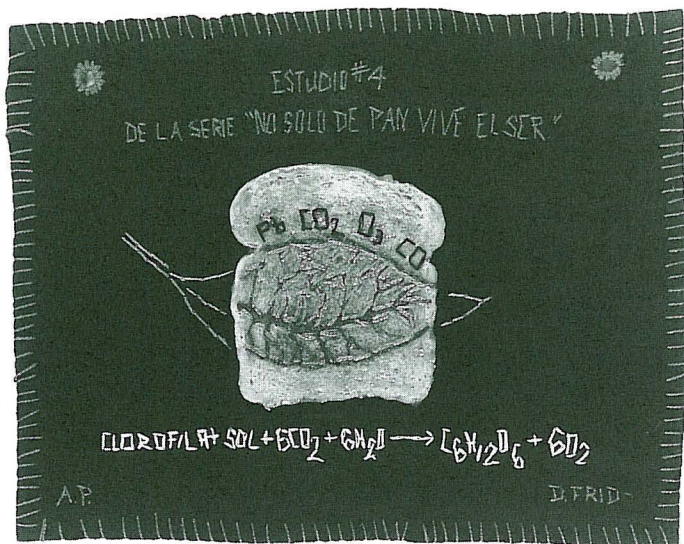 ESTUDIO #4
DE LA SERIE "NO SOLO DE PAN VIVE EL SER"
Pb CO₂ O₃ CO
CLOROFILA + SOL + 6CO₂ + 6H₂O → C₆H₁₂O₆ + 6O₂
A.P. D. FRID-